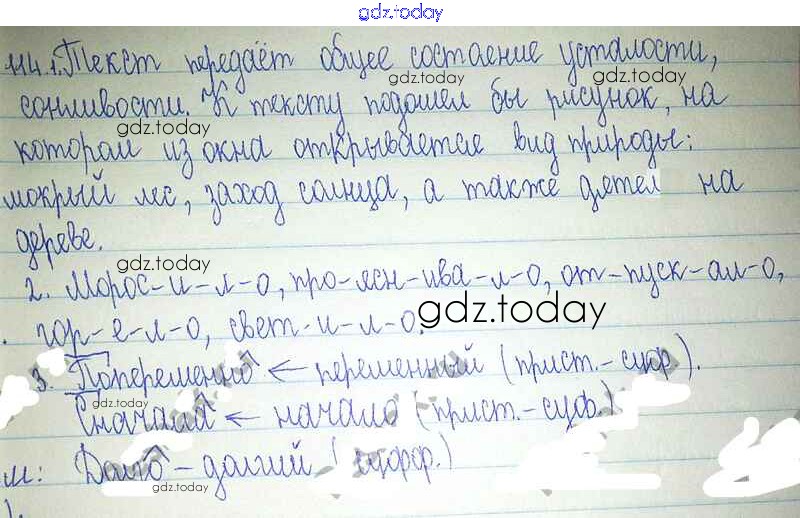 gdz.today
114. 1. Текст передаёт общее состаение усталости,
gdz.today gdz.today
сонливости. К тексту подошел бы рисунок, на
gdz.today
котором из окна открывается вид природы:
мокрый лес, заход солнца, а также дятел на
дереве.
gdz.today
2. Морос-и-л-о, про-ясн-ива-л-о, от-пуск-ал-о,
гор-е-л-о, свет-и-л-о. gdz.today
3. Попеременно ← переменный (прист.-суф).
gdz.today
Сначала ← начало (прист.-суф.)
М: Долго - долгий (суфф.)
gdz.today